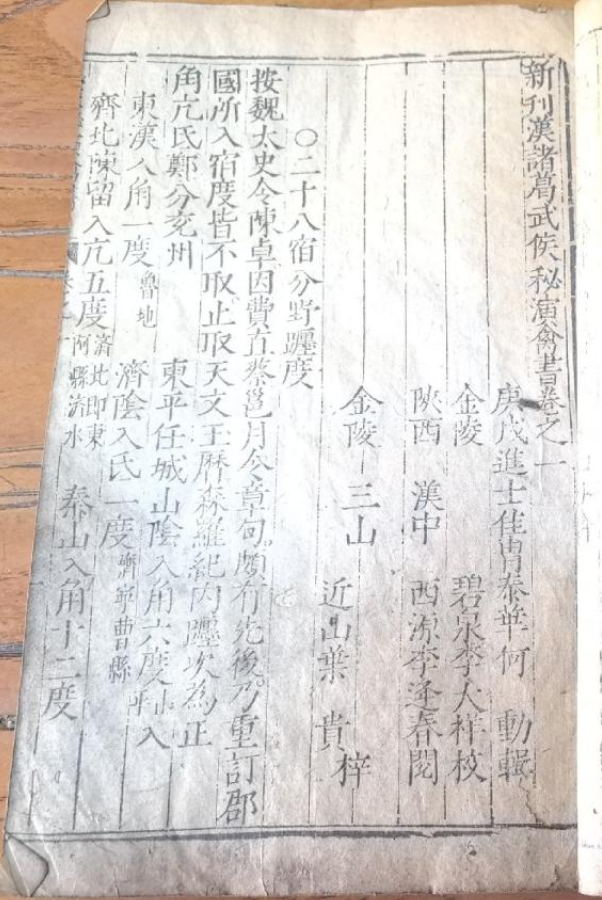 新刊漢諸葛武侯秘演禽書卷之一
庚戌進士佳胄泰華何　勳輯
金陵　碧泉李大祥校
陝西　漢中　西源李逢春閱
金陵　三山　近山葉　貴　梓
○二十八宿分野躔度
按魏太史令陳卓因費直蔡邕月令章句頗有先後乃重訂郡
國所入宿度皆不取止取天文玉曆森羅紀內躔次為正
角亢氐鄭分兖州　東平任城山陰入角六度　入
東漢入角一度魯地　濟陰入氐一度濟　曹縣
齊北陳留入亢五度濟北即東阿縣濟水　泰山入角十二度